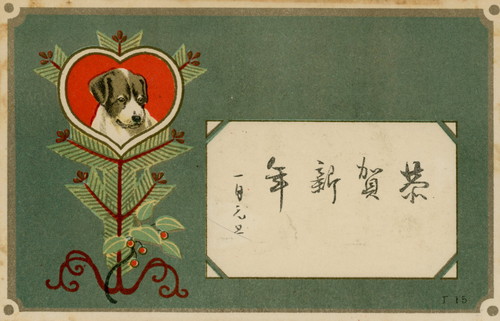 恭賀新年
一月元旦
Г 15